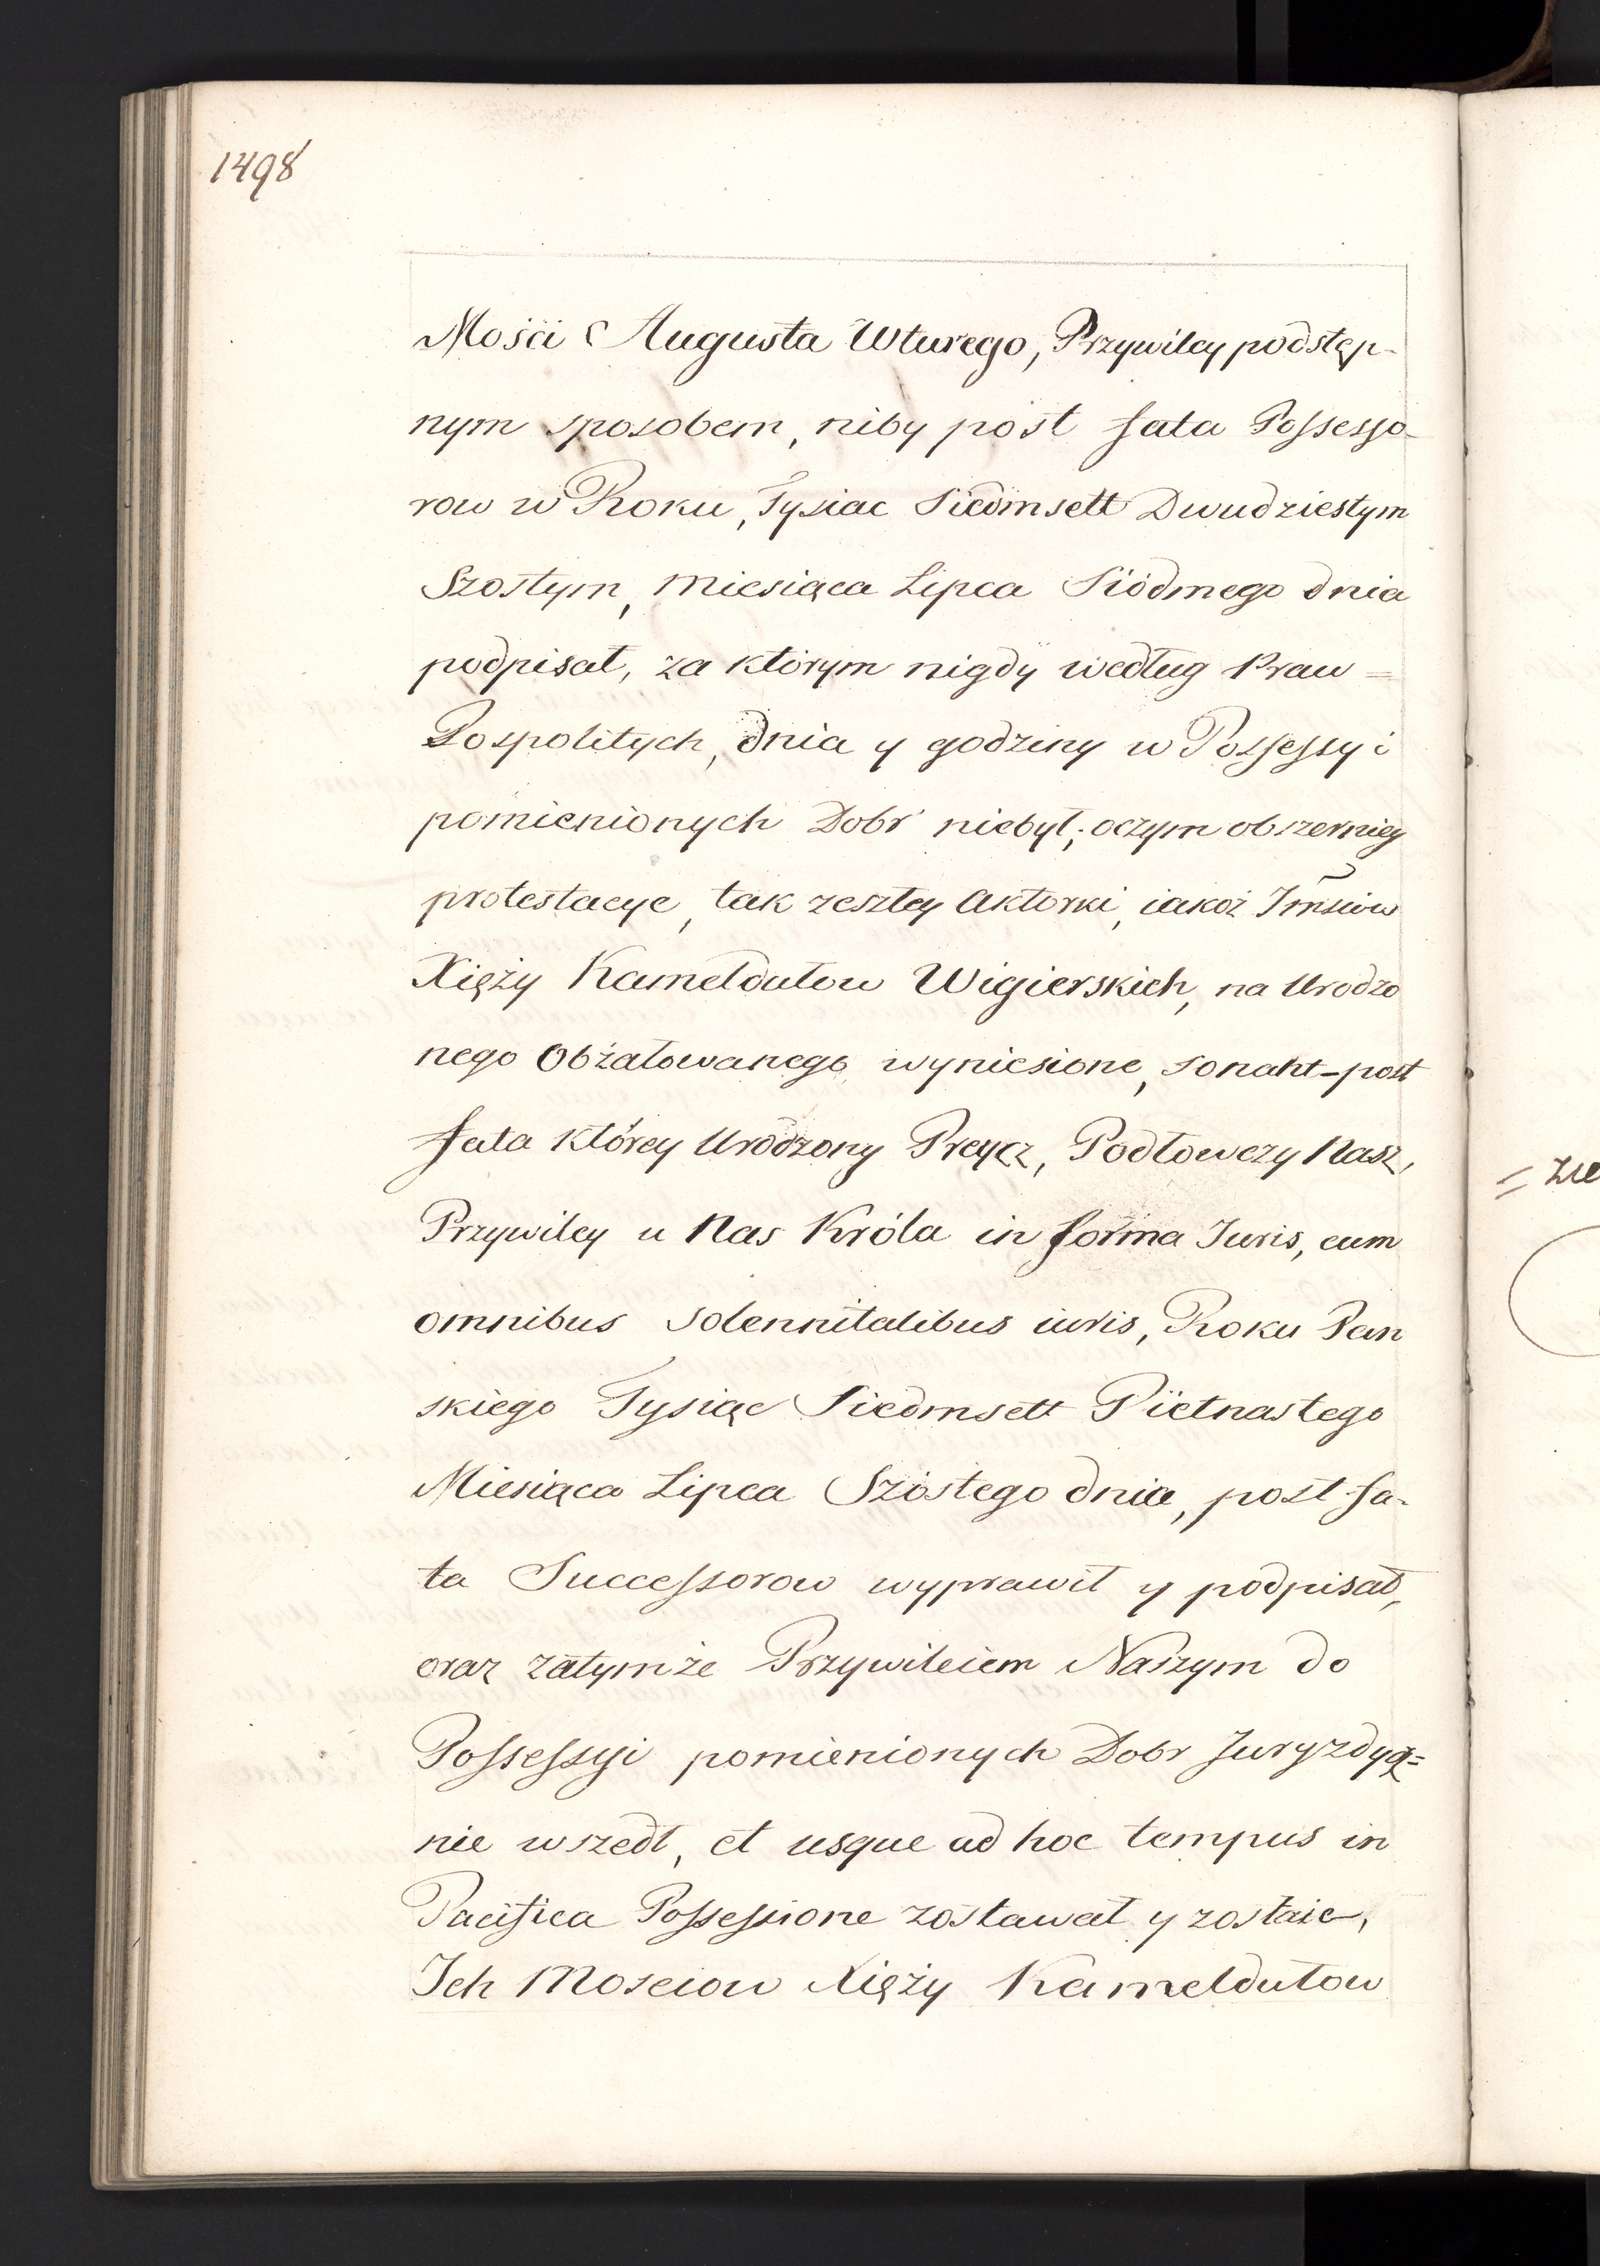 1498
Mośći Augusta Wturego, Przywiley podstęp-
nym sposobem, niby post fata Possesso-
row w Roku, Tysiac Siedmsett Dwudziestym
Szostym, Miesiąca Lipca Siódmego dnia
podpisał, za ktorym nigdy według Praw =
Pospolitych, dnia y godziny w Possessyi
pomienionych Dobr niebył; oczym obszerniey
protestacye, tak zeszłey Aktorki, iakoż Imsciow
Xięży Kameldułow Wigierskich, na Urodzo
nego Obżałowanego wyniesione, sonant - post
fata którey Urodzony Preycz, Podłowczy Nasz,
Przywiley u Nas Króla in forma Iuris, cum
omnibus solennitatibus iuris, Roku Pan
skiego Tysiąc Siedmsett Piętnastego
Miesiąca Lipca Szóstego dnia, post fa-
ta Successorow wyprawił y podpisał,
oraz zatymże Przywileiem Naszym do
Possessyi pomienionych Dobr Juryzdyą=
nie wszedł, et usque ad hoc tempus in
Pacifica Possessione zostawał y zostaie,
Ich Mosciow Xięży Kameldułow
= zie